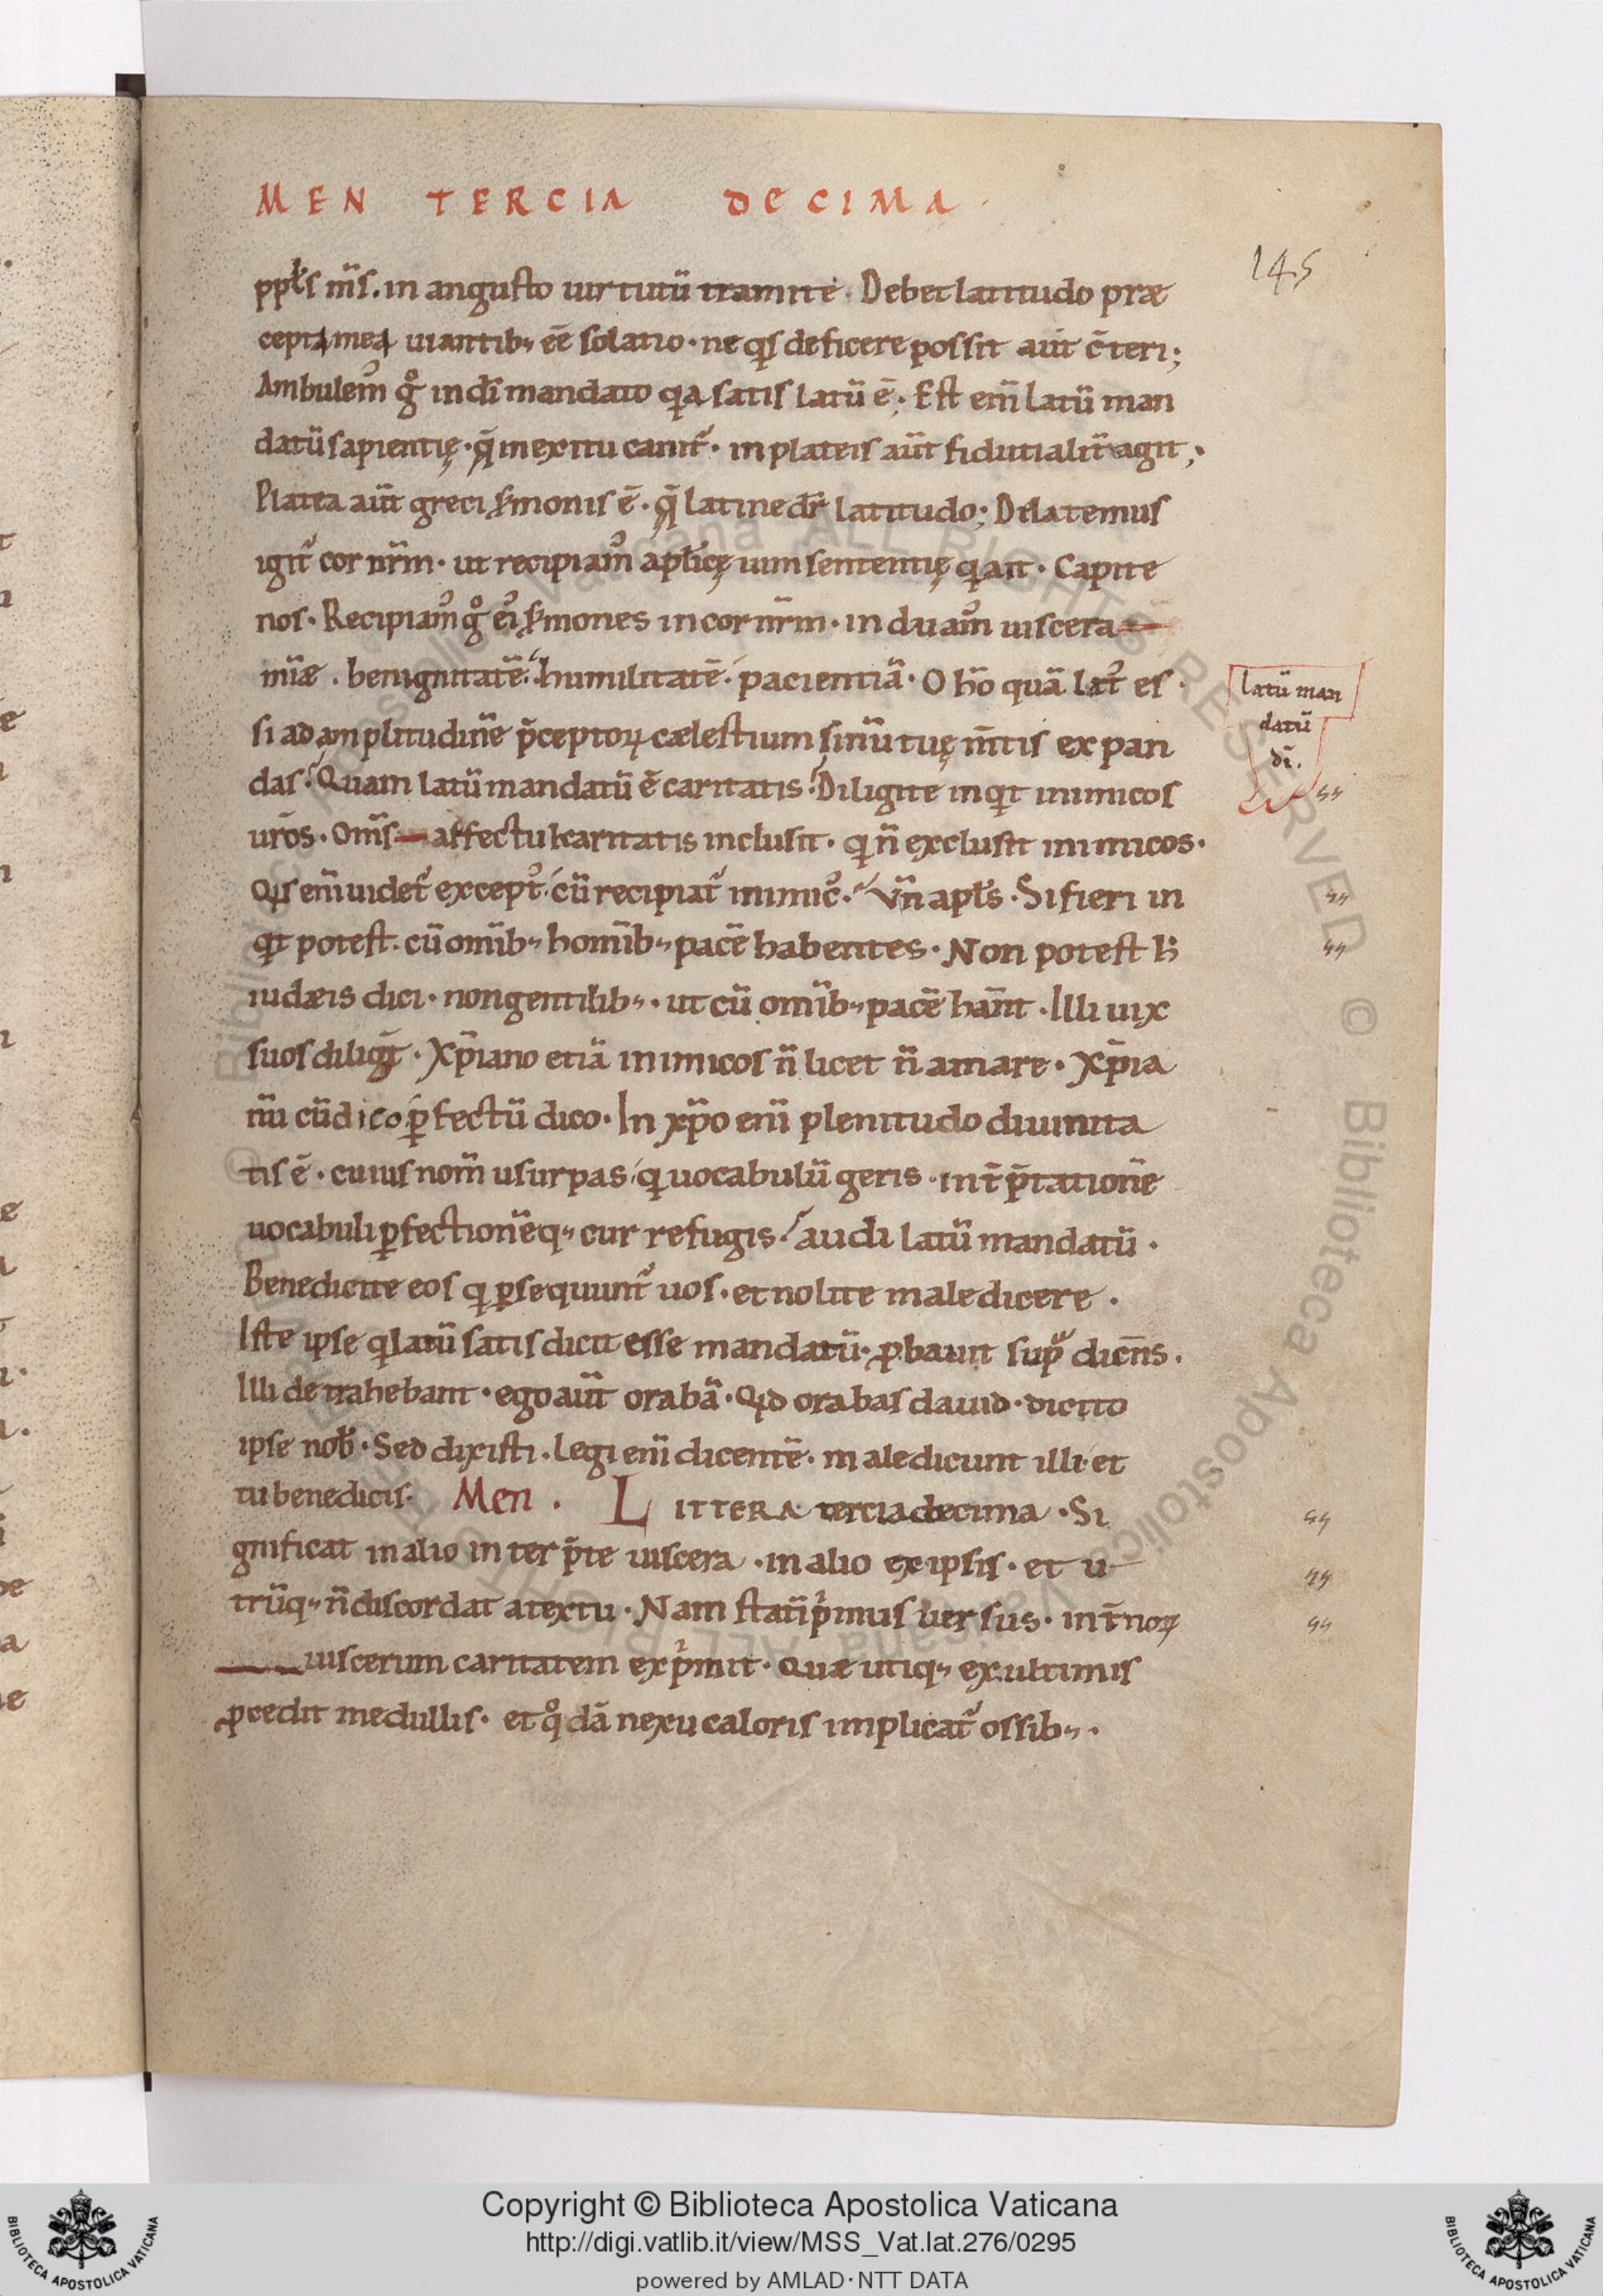 MEN TERCIA DECIMA.
145
ppl̃s m̃s. in angusto uirtutū tramite. Debet latitudo præ
cepta mea uiantib; eē solatio. ne q̃s deficere possit aut c̄teri;
Ambulem᷒ gͦ in dī mandato qa satis latū ē. Est enī latū man
datū sapientię. q̄ in exitu canit᷑. in plateis aūt fidutialit᷑ agit;
Platea aūt greci s̄monis ē. q̄ latine dr̄ latitudo; Delatemus
igit᷑ cor nr̄m. ut recipiam᷒ apl̃icę uim sententię q ait. Capite
nos. Recipiam᷒ gͦ ei᷒ s̄mones in cor nr̄m. induam᷒ uiscera
mīæ. benignitatē. humilitatē. pacientiā. O hō quā lat᷒ es.
si ad amplitudinē p̄ceptoꝝ cælestium sinū tuę m̄tis expan
das. Quam latū mandatū ē caritatis. Diligite inqt inimicos
ur̄os. Om̄s affectu caritatis inclusit. q n̄ exclusit inimicos.
Qis enī uidet᷑ except᷒. cū recipiat᷑ inimic᷒. Vn̄ apl̃s. Si fieri in
qt potest. cū omīb; homīb; pacē habentes. Non potest h̄
iudæis dici. non gentilib;. ut cū omīb; pacē hānt. Illi uix
suos diligt̄. Xp̄iano etiā inimicos n̄ licet n̄ amare. Xp̄ia
nū cū dico ꝑfectū dico. In xp̄o enī plenitudo diuinita
tis ē. cuius nom̄ usurpas. q uocabulū geris. int̄p̄tationē
uocabuli ꝑfectionēq; cur refugis. audi latū mandatū.
Benedicite eos q ꝑsequunt᷑ uos. et nolite maledicere.
Iste ipse q latū satis dicit esse mandatū. ꝓbauit sup̃ dicēns.
Illi detrahebant. ego aūt orabā. Qid orabas dauid. dicito
ipse nob̃. Sed dixisti. Legi enī dicentē. maledicunt illi et
tu benedicis. Men. LITTERA terciadecima. Si
gnificat in alio interp̄te uiscera. in alio ex ipsis. et u
trūq; n̄ discordat a textu. Nam statī pͥmus uersus. int̄noꝝ
uiscerum caritatem expͥmit. Quæ utiq; ex ultimis
ꝓcedit medullis. et qͦdā nexu caloris implicat᷑ ossib;.
latū man
datū
dī.
Copyright © Biblioteca Apostolica Vaticana
http://digi.vatlib.it/view/MSS_Vat.lat.276/0295
powered by AMLAD·NTT DATA
BIBLIOTECA APOSTOLICA VATICANA
BIBLIOTECA APOSTOLICA VATICANA